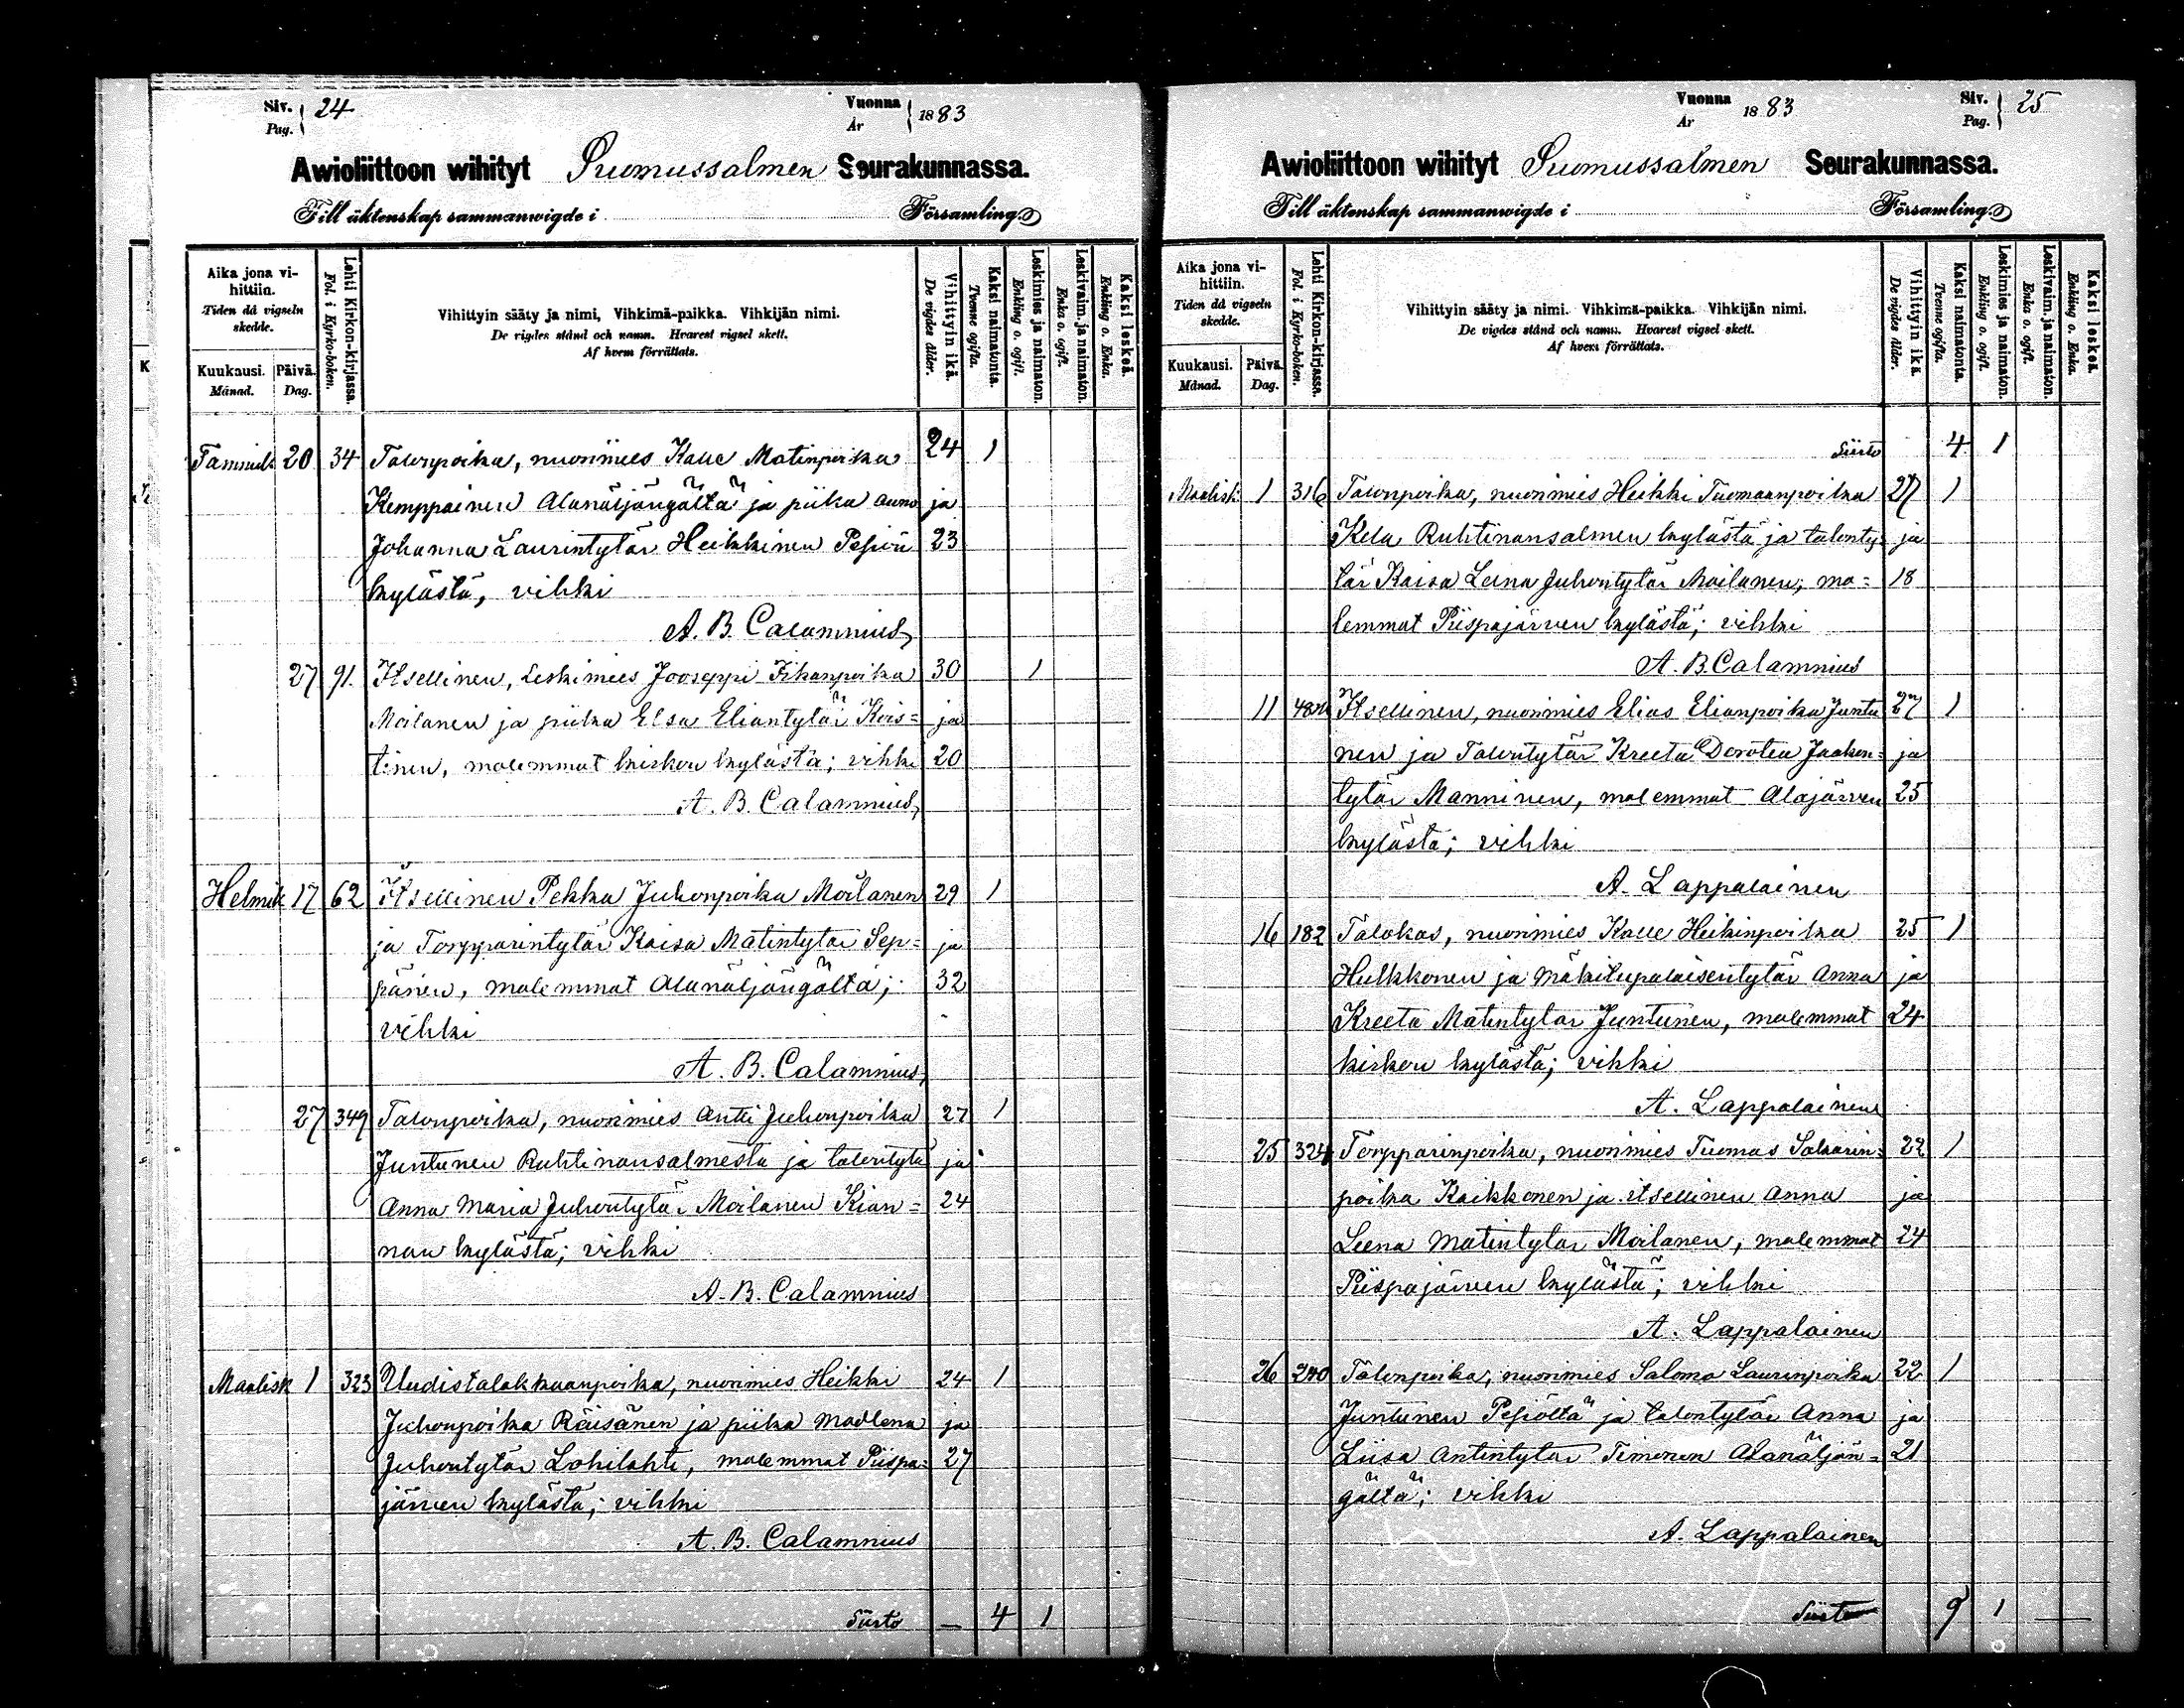 Siv. Pag. 24
Vuonna År 1883
Awioliittoon wihityt Suomussalmen Seurakunnassa.
Till äktenskap sammanwigde i Församling.
Aika jona vihittiin. Tiden då vigseln skedde.
Kuukausi. Månad. Päivä. Dag.
Lehti Kirkon-kirjassa. Fol. i Kyrko-boken.
Vihittyin sääty ja nimi, Vihkimä-paikka. Vihkijän nimi.
De vigdes stånd och namn. Hvarest vigsel skett.
Af hvem förrättats.
Vihittyin ikä. De vigdes ålder.
Kaksi naimatonta. Tvenne ogifta.
Leskimies ja naimaton. Enkling o. ogift.
Leskivaim. ja naimaton. Enka o. ogift.
Kaksi leskeä. Enkling o. Enka.
Tammik 20 34 Talonpoika, nuorimies Kalle Matinpoika 24 1
Kemppainen Alanäljängältä ja piika Anna ja
Johanna Laurintytär Heikkinen Pesiön 23
kylästä, vihki
A. B. Calamnius
27 91. Itsellinen, Leskimies Jooseppi Iikanpoika 30 1
Moilanen ja piika Elsa Eliantytär Kois= ja
tinen, molemmat kirkon kylästä; vihki 20
A. B. Calamnius
Helmik 17 62 Itsellinen Pekka Juhonpoika Moilanen 29 1
ja Torpparintytär Kaisa Matintytär Sep= ja
pänen, molemmat Alanäljängältä; 32
vihki
A. B. Calamnius
27 349 Talonpoika, nuorimies Antti Juhonpoika 27 1
Juntunen Ruhtinansalmesta ja talontytä ja
Anna Maria Juhontytär Moilanen Kian= 24
nan kylästä; vihki
A. B. Calamnius
Maalisk 1 323 Uudistalokkaanpoika, nuorimies Heikki 24 1
Juhonpoika Räisänen ja piika Madlena ja
Juhontytär Lohilahti, molemmat Piispa= 27
järven kylästä; vihki
A. B. Calamnius
Siirto — 4 1
Vuonna År 1883
Siv. Pag. 25
Awioliittoon wihityt Suomussalmen Seurakunnassa.
Till äktenskap sammanwigde i Församling.
Aika jona vihittiin. Tiden då vigseln skedde.
Kuukausi. Månad. Päivä. Dag.
Lehti Kirkon-kirjassa. Fol. i Kyrko-boken.
Vihittyin sääty ja nimi. Vihkimä-paikka. Vihkijän nimi.
De vigdes stånd och namn. Hvarest vigsel skett.
Af hvem förrättats.
Vihittyin ikä. De vigdes ålder.
Kaksi naimatonta. Tvenne ogifta.
Leskimies ja naimaton. Enkling o. ogift.
Leskivaim. ja naimaton. Enka o. ogift.
Kaksi leskeä. Enkling o. Enka.
Siirto 4 1
Maalisk 1 316 Talonpoika, nuorimies Heikki Tuomaanpoika 27 1
Kela Ruhtinansalmen kylästä ja talonty= ja
tär Kaisa Leena Juhontytär Moilanen; mo= 18
lemmat Piispajärven kylästä; vihki
A. B. Calamnius
11 Itsellinen, nuorimies Elias Elianpoika Juntu 27 1
nen ja Talontytär Kreeta Dorotea Jaakon= ja
tytär Manninen, molemmat Alajärven 25
kylästä; vihki
A. Lappalainen
16 182 Talokas, nuorimies Kalle Heikinpoika 25 1
Hulkkonen ja Mäkitupalaisentytär Anna ja
Kreeta Matintytär Juntunen, molemmat 24
kirkon kylästä; vihki
A. Lappalainen
25 324 Torpparinpoika, nuorimies Tuomas Sakarin= 22 1
poika Kaikkonen ja itsellinen Anna ja
Leena Matintytär Moilanen, molemmat 24
Piispajärven kylästä; vihki
A. Lappalainen
26 240 Talonpoika, nuorimies Salomo Laurinpoika 22 1
Juntunen Pesiöltä ja talontytär Anna ja
Liisa Antintytär Timonen Alanäljän= 21
gältä; vihki
A. Lappalainen
Siirto 9 1